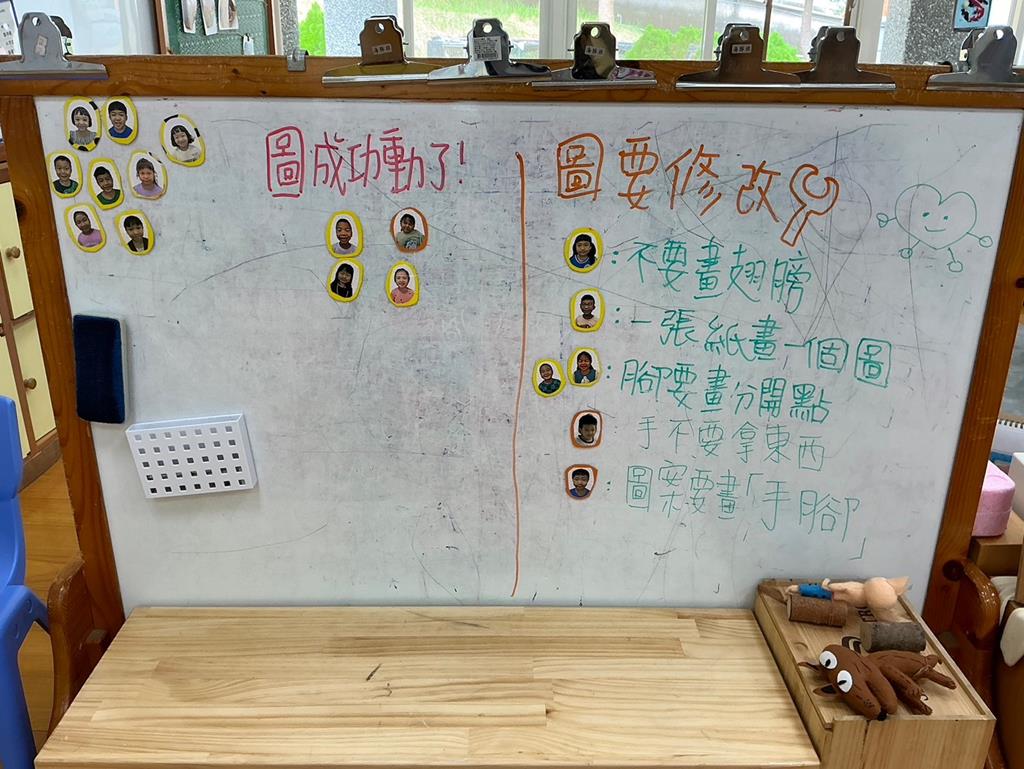 圖成功動了!
圖要修改
:不要畫翅膀
:一張紙畫一個圖
:腳要畫分開點
手不要拿東西
:圖案要畫「手腳」